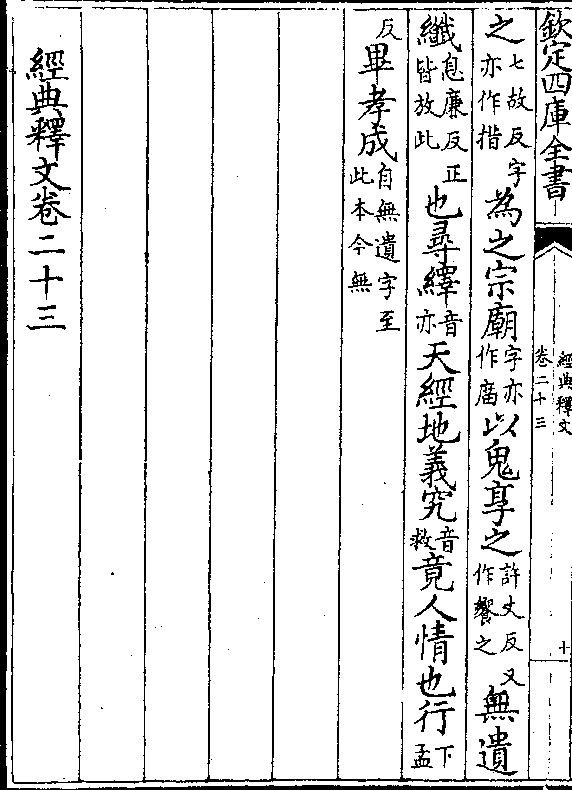 欽定四庫全書
經典釋文
卷二十三
十
之七故反字亦作措為之宗廟字亦作庿以鬼享之許丈反又作饗之無遺
纖息廉反正皆放此也尋繹音亦天經地義究音救竟人情也行下孟
反畢孝成自無遺字至此本今無
經典釋文卷二十三